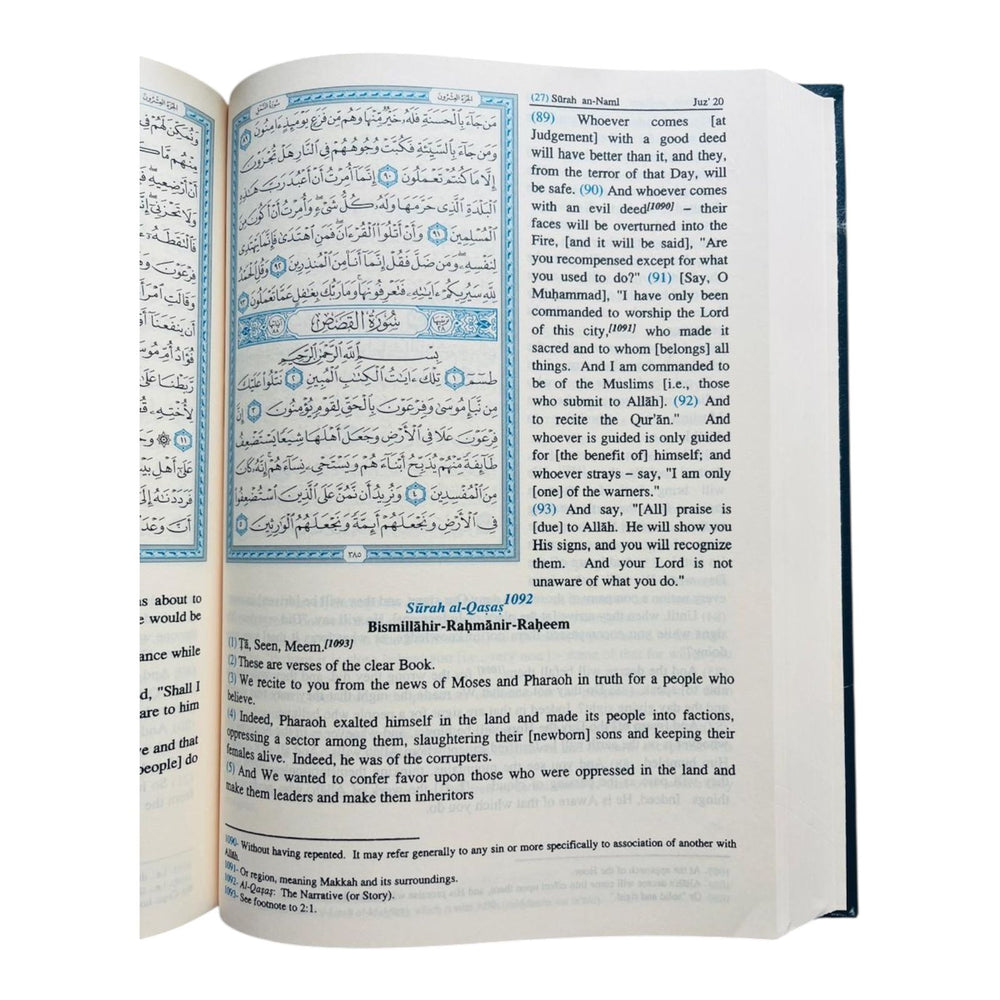 الجزء العشرون
سورة النمل
مَن جَآءَ بِالْحَسَنَةِ فَلَهُۥ خَيْرٌ مِّنْهَا وَهُم مِّن فَزَعٍ يَوْمَئِذٍ ءَامِنُونَ ٨٩
وَمَن جَآءَ بِالسَّيِّئَةِ فَكُبَّتْ وُجُوهُهُمْ فِى النَّارِ هَلْ تُجْزَوْنَ
إِلَّا مَا كُنتُمْ تَعْمَلُونَ ٩٠ إِنَّمَآ أُمِرْتُ أَنْ أَعْبُدَ رَبَّ هَٰذِهِ
الْبَلْدَةِ الَّذِى حَرَّمَهَا وَلَهُۥ كُلُّ شَىْءٍ وَأُمِرْتُ أَنْ أَكُونَ مِنَ
الْمُسْلِمِينَ ٩١ وَأَنْ أَتْلُوَا۟ الْقُرْءَانَ فَمَنِ اهْتَدَىٰ فَإِنَّمَا يَهْتَدِى
لِنَفْسِهِۦ وَمَن ضَلَّ فَقُلْ إِنَّمَآ أَنَا۠ مِنَ الْمُنذِرِينَ ٩٢ وَقُلِ الْحَمْدُ
لِلَّهِ سَيُرِيكُمْ ءَايَٰتِهِۦ فَتَعْرِفُونَهَا وَمَا رَبُّكَ بِغَٰفِلٍ عَمَّا تَعْمَلُونَ ٩٣
سُورَةُ الْقَصَصِ
بِسْمِ اللَّهِ الرَّحْمَٰنِ الرَّحِيمِ
طسٓمٓ ١ تِلْكَ ءَايَٰتُ الْكِتَٰبِ الْمُبِينِ ٢ نَتْلُوا۟ عَلَيْكَ
مِن نَّبَإِ مُوسَىٰ وَفِرْعَوْنَ بِالْحَقِّ لِقَوْمٍ يُؤْمِنُونَ ٣ إِنَّ
فِرْعَوْنَ عَلَا فِى الْأَرْضِ وَجَعَلَ أَهْلَهَا شِيَعًا يَسْتَضْعِفُ
طَآئِفَةً مِّنْهُمْ يُذَبِّحُ أَبْنَآءَهُمْ وَيَسْتَحْىِۦ نِسَآءَهُمْ إِنَّهُۥ كَانَ
مِنَ الْمُفْسِدِينَ ٤ وَنُرِيدُ أَن نَّمُنَّ عَلَى الَّذِينَ اسْتُضْعِفُوا۟
فِى الْأَرْضِ وَنَجْعَلَهُمْ أَئِمَّةً وَنَجْعَلَهُمُ الْوَٰرِثِينَ ٥
٣٨٥
(27) Sūrah an-Naml Juz' 20
(89) Whoever comes [at
Judgement] with a good deed
will have better than it, and they,
from the terror of that Day, will
be safe. (90) And whoever comes
with an evil deed[1090] – their
faces will be overturned into the
Fire, [and it will be said], "Are
you recompensed except for what
you used to do?" (91) [Say, O
Muḥammad], "I have only been
commanded to worship the Lord
of this city,[1091] who made it
sacred and to whom [belongs] all
things. And I am commanded to
be of the Muslims [i.e., those
who submit to Allāh]. (92) And
to recite the Qur'ān." And
whoever is guided is only guided
for [the benefit of] himself; and
whoever strays – say, "I am only
[one] of the warners."
(93) And say, "[All] praise is
[due] to Allāh. He will show you
His signs, and you will recognize
them. And your Lord is not
unaware of what you do."
Sūrah al-Qaṣaṣ1092
Bismillāhir-Raḥmānir-Raḥeem
(1) Ṭā, Seen, Meem.[1093]
(2) These are verses of the clear Book.
(3) We recite to you from the news of Moses and Pharaoh in truth for a people who
believe.
(4) Indeed, Pharaoh exalted himself in the land and made its people into factions,
oppressing a sector among them, slaughtering their [newborn] sons and keeping their
females alive. Indeed, he was of the corrupters.
(5) And We wanted to confer favor upon those who were oppressed in the land and
make them leaders and make them inheritors
1090- Without having repented. It may refer generally to any sin or more specifically to association of another with
Allāh.
1091- Or region, meaning Makkah and its surroundings.
1092- Al-Qaṣaṣ: The Narrative (or Story).
1093- See footnote to 2:1.
about to
would be
while
"Shall I
are to him
and that
people] do